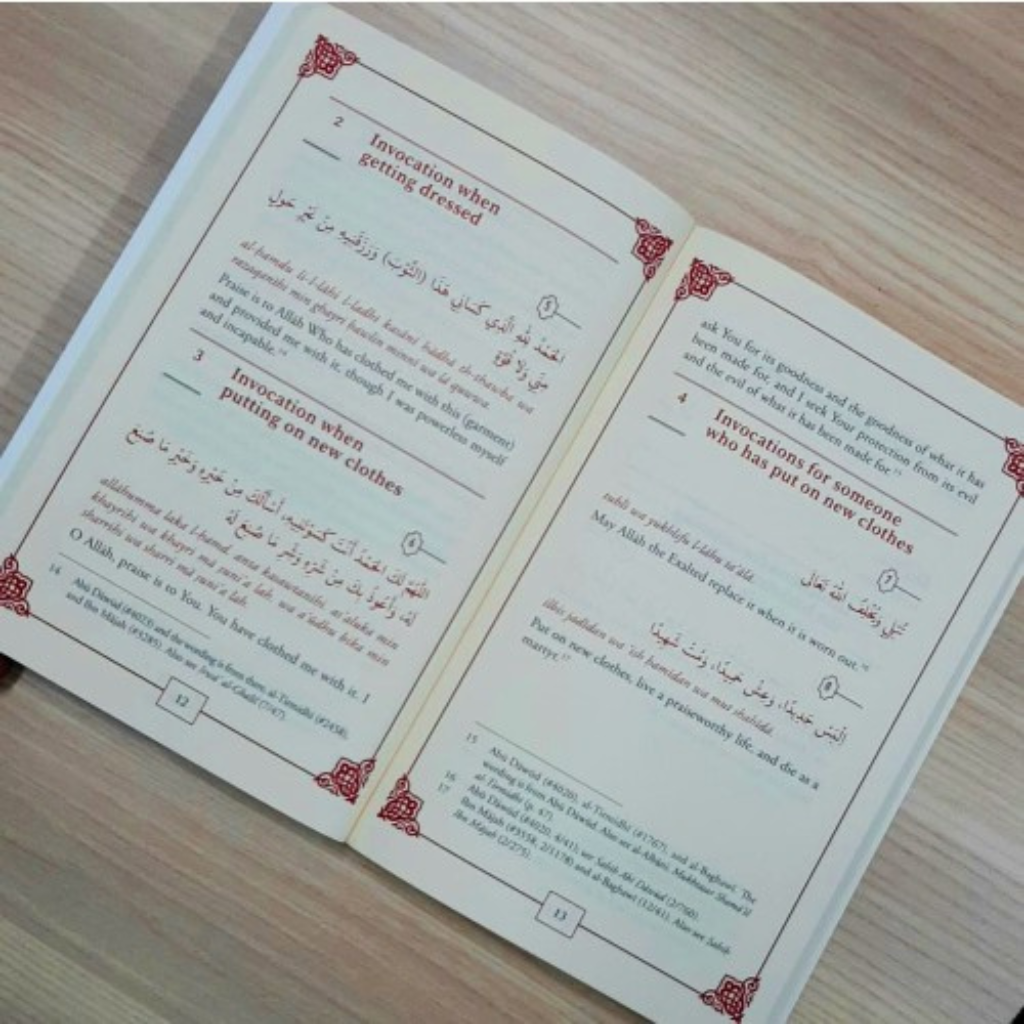 2
Invocation when
getting dressed
5
الحَمْدُ لِلهِ الَّذِي كَسَانِي هَذَا (الثَّوْبَ) وَرَزَقَنِيهِ مِنْ غَيْرِ حَوْلٍ
مِنِّي وَلَا قُوَّةٍ
al-ḥamdu li-l-lāhi l-ladhī kasānī hādhā th-thawba wa
razaqanīhi min ghayri ḥawlin minnī wa lā quwwa.
Praise is to Allāh Who has clothed me with this (garment)
and provided me with it, though I was powerless myself
and incapable.14
3
Invocation when
putting on new clothes
6
اللَّهُمَّ لَكَ الحَمْدُ أَنْتَ كَسَوْتَنِيهِ، أَسْأَلُكَ مِنْ خَيْرِهِ وَخَيْرِ مَا صُنِعَ
لَهُ، وَأَعُوذُ بِكَ مِنْ شَرِّهِ وَشَرِّ مَا صُنِعَ لَهُ
allāhumma laka l-ḥamd, anta kasawtanīhi, as'aluka min
khayrihi wa khayri mā ṣuni'a lah, wa a'ūdhu bika min
sharrihi wa sharri mā ṣuni'a lah.
O Allāh, praise is to You. You have clothed me with it. I
14 Abū Dāwūd (#4023) and the wording is from them, al-Tirmidhī (#3458),
and Ibn Mājah (#3285). Also see Irwā' al-Ghalīl (7/47).
12
ask You for its goodness and the goodness of what it has
been made for, and I seek Your protection from its evil
and the evil of what it has been made for.15
4
Invocations for someone
who has put on new clothes
7
تُبْلِي وَيُخْلِفُ اللهُ تَعَالَى
tublī wa yukhlifu l-lāhu ta'ālā.
May Allāh the Exalted replace it when it is worn out.16
8
الْبَسْ جَدِيدًا، وَعِشْ حَمِيدًا، وَمُتْ شَهِيدًا
ilbis jadīdan wa 'ish ḥamīdan wa mut shahīdā.
Put on new clothes, live a praiseworthy life, and die as a
martyr.17
15 Abū Dāwūd (#4020), al-Tirmidhī (#1767), and al-Baghawī. The
wording is from Abū Dāwūd. Also see al-Albānī, Mukhtaṣar Shamā'il
al-Tirmidhī (p. 47).
16 Abū Dāwūd (#4020, 4/41); see Ṣaḥīḥ Abī Dāwūd (2/760).
17 Ibn Mājah (#3558, 2/1178) and al-Baghawī (12/41). Also see Ṣaḥīḥ
Ibn Mājah (2/275).
13